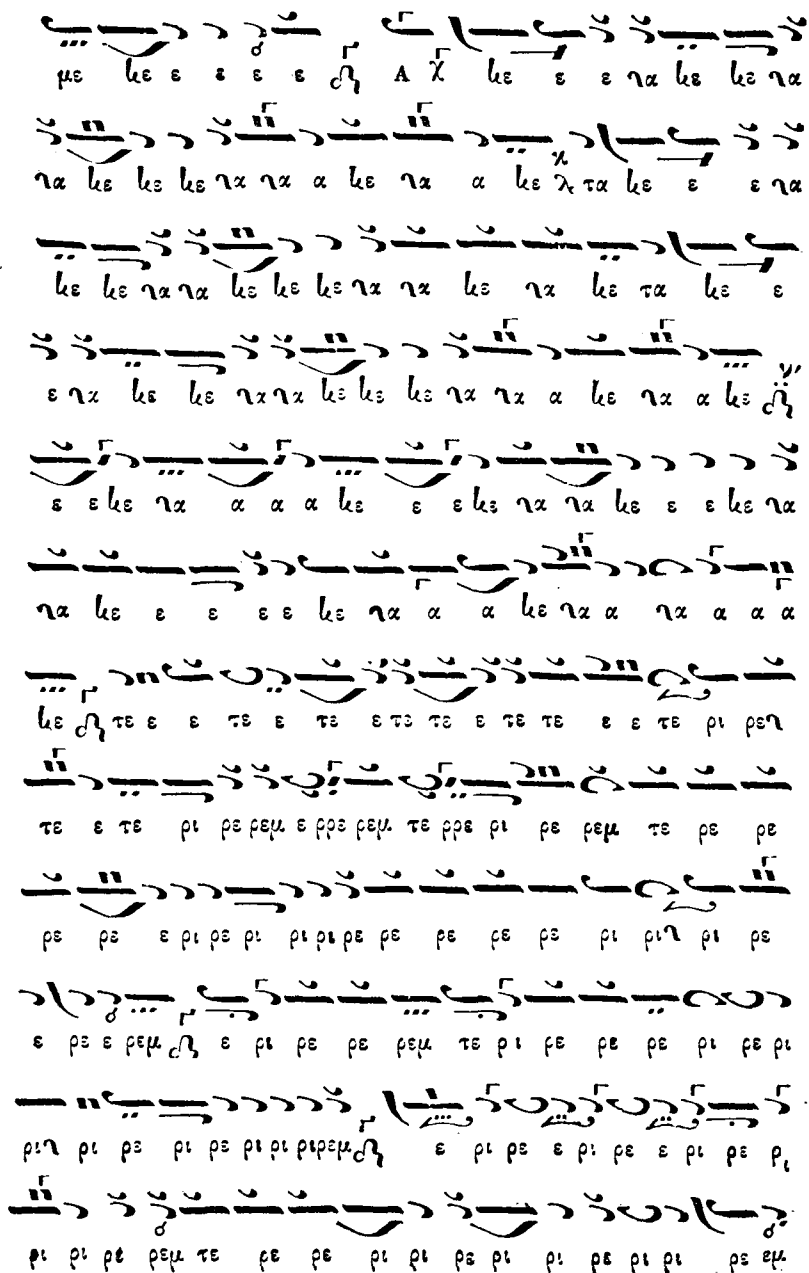 με νε ε ε ε ε Α νε ε ε να νε νε να
να νε νε νε να να α νε να α νε τα νε ε ε να
νε νε να να νε νε νε να να νε να νε τα νε ε
ε να νε νε να να νε νε νε να να α νε να α νε
ε ε νε να α α α νε ε ε νε να να νε ε ε νε να
να νε ε ε ε ε νε να α α νε να α να α α α
νε τε ε ε τε ε τε ε τε τε ε τε τε ε ε τε ρι ρεν
τε ε τε ρι ρε ρεμ ε ρρε ρεμ τε ρρε ρι ρε ρεμ τε ρε ρε
ρε ρε ε ρι ρε ρι ρι ρι ρε ρε ρε ρε ρε ρι ριν ρι ρε
ε ρε ε ρεμ ε ρι ρε ρε ρεμ τε ρι ρε ρε ρε ρι ρε ρι
ριν ρι ρε ρι ρε ρι ρι ριρεμ ε ρι ρε ε ρι ρε ε ρι ρε ρι
ρι ρι ρε ρεμ τε ρε ρε ρι ρι ρε ρι ρι ρε ρι ρι ρε